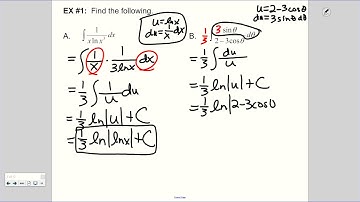 EX #1: Find the following.
A. ∫ 1/(x ln x³) dx
u = lnx
du = 1/x dx
= ∫ 1/x · 1/(3lnx) dx
= 1/3 ∫ 1/u du
= 1/3 ln|u| + C
= 1/3 ln|lnx| + C
u = 2-3cosθ
du = 3sinθ dθ
B. 1/3 ∫ 3 sinθ/(2-3cosθ) dθ
= 1/3 ∫ du/u
= 1/3 ln|u| + C
= 1/3 ln|2-3cosθ